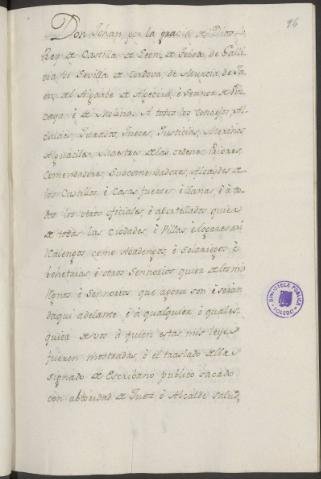 96
Don Johan, por la gracia de Dios,
Rey de Castilla de Leon, de Toledo, de Galli-
cia, de Sevilla de Cordova, de Murcia, de Ja-
en, del Algarbe de Algecira, è Sennor de Viz-
caya, è de Molina. A todos los Concejos, Al-
caldes, Jurados, Jueces, Justicias, Merinos
Alguaciles, Maestres de las ordenes, Priores,
Comendadores, Subcomendadores, Alcaides de
los Castillos, è Casas fuertes, è llanas, è à to-
dos los otros oficiales, è aportellados quier
de todas las Ciudades, è Villas, è logares
Realengos, como Abadengos, è Solariegos, è
behetrias, è otros Sennorios quier de los mis
Regnos, è Sennorios que agora son è seran
daqui adelante, è à qualquier, è quales-
quier de vos à quien estas mis leyes
fueren mostradas, è el traslado de ellas
signado de Escribano publico sacado
con abtoridad de Juez, è Alcalde salud,
BIBLIOTECA PÚBLICA
TOLEDO